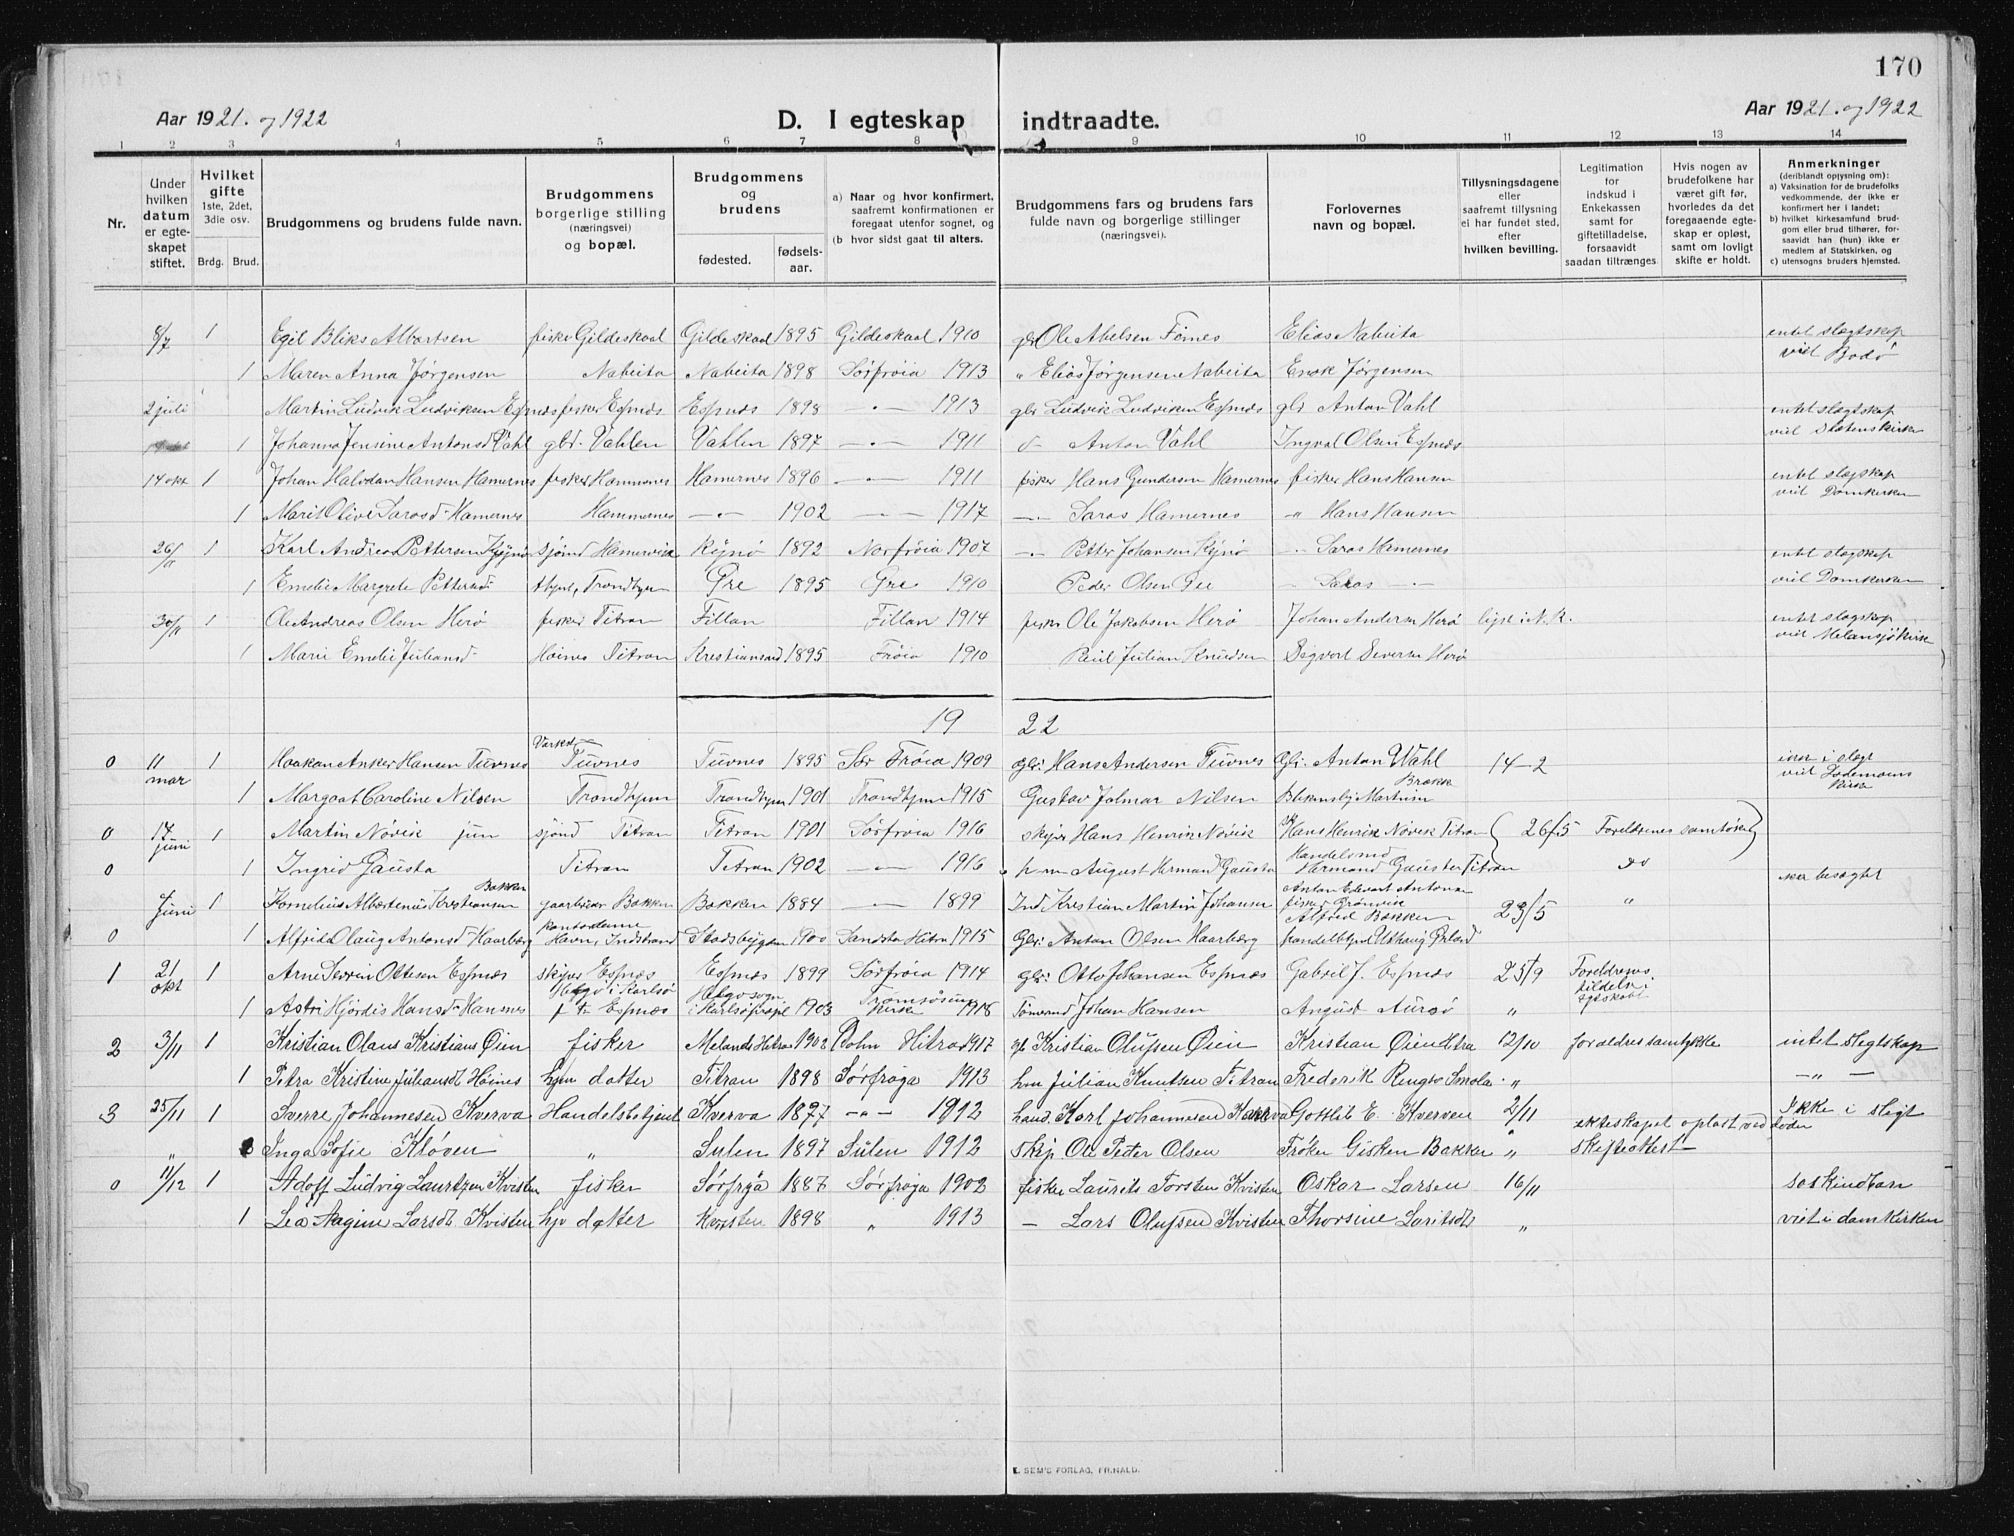 170
Aar 1921. og 1922 D. I egteskap indtraadte. Aar 1921. og 1922
1 2 3 4 5 6 7 8 9 10 11 12 13 14
Nr.
Under hvilken datum er egteskapet stiftet.
Hvilket gifte 1ste, 2det, 3die osv.
Brdg. Brud.
Brudgommens og brudens fulde navn.
Brudgommens borgerlige stilling (næringsvei) og bopæl.
Brudgommens og brudens
fødested. fødsels-aar.
a) Naar og hvor konfirmert, saafremt konfirmationen er foregaat utenfor sognet, og (b hvor sidst gaat til alters.
Brudgommens fars og brudens fars fulde navn og borgerlige stillinger (næringsvei).
Forlovernes navn og bopæl.
Tillysningsdagene eller saafremt tillysning ei har fundet sted, efter hvilken bevilling.
Legitimation for indskud i Enkekassen samt for giftetilladelse, forsaavidt saadan tiltrænges
Hvis nogen av brudefolkene har været gift før, hvorledes da det foregaaende egteskap er opløst, samt om lovligt skifte er holdt.
Anmerkninger (deriblandt opjysning om): a) Vaksination for de brudefolks vedkommende, der ikke er konfirmert her i landet; b) hvilket kirkesamfund brudgom eller brud tilhører, forsaavidt han (hun) ikke er medlem af Statskirken, og c) utensogns bruders hjemsted.
8/7 1 Egil Bliks Albertsen fisker Gildeskaal Gildeskaal 1895 Gildeskaal 1910 gbr Ole Abelsen Elias Nabeita intet slegtskap viet Bodø
1 Maren Anna Jørgensen Nabeita Nabeita 1898 Sørfrøia 1913 " Elias Jørgensen Nabeita Enok Jørgensen
2 juli Martin Ludvik Ludviksen Espnæs fisker Espnæs Espnæs 1898 - " - 1913 gbr Ludvik Ludviksen Espnæs gbr Anton Vahl intet slegtskap viet
1 Johanna Jensine Antonsd Vahl gbr. Vahlen Vahlen 1897 - " - 1911 Anton Vahl Ingval Olsen Espnæs
14 okt 1 Johan Halvdan Hansen Hamernes fisker Hammernes Hamernes 1896 - " - 1911 fisker Hans Gundersen Hamernes fisker Hans Hansen intet slegtskap viet Domkirken
1 Marit Olive Larsd Hamernes Hammernes - " - 1902 - " - 1917 - " - Hamernes " Hans Hansen
26/11 1 Karl Andreas Pettersen Kyynø sjømd Hamervik Kyynø 1892 Norfrøia 1907 - " - Petter Johansen Kyynø - " - Hamernes intet slegskap
1 Emelie Margrete Pettersd Trondhjem Øre 1895 Øre 1910 Peder Olsen viet Domkirken
30/11 1 Ole Andreas Olsen Herø fisker Titran Fillan Fillan 1914 fisker Ole Jakobsen Herø Johan Andersen Herø lyst i N.K. intet slegskap viet Melansjökirke
1 Marie Emelie Juliansd Høines Titran Kristiansund 1895 Frøia 1910 Paul Julian Knudsen Segvart Seversen Herø
19 22
0 11 mar 1 Haakan Anker Hansen Tuvnes Tuvnes Tuvnes 1895 Sør Frøia 1909 gbr: Hans Andersen Tuvnes Gbr. Anton Wahl 14-2 ikke i slegt viet Lademoens kirke
1 Margoat Caroline Nilsen Trondhjem Trondhjem 1901 Trondhjem 1915 Gustav Jalmar Nilsen
0 17 juni 1 Martin Nøvik jun sjømd Titran Titran 1901 Sørfrøia 1916 skiper Hans Henrik Nøvik Hans Henrik Nøvik Titran 26/5 Foreldrenes samtykke
0 1 Ingrid Gausta Titran Titran 1902 - " - 1916 August Herman Gausta Handelsmd Hermand Gausta Titran do
4 juni 1 Kornelius Albertinius Kristiansen Bakken gaarbruker Bakken Bakken 1884 - " - 1899 Ind Kristian Martin Johansen Alfred Bakken 23/5 " ikke besægtet
0 1 Alfrid Olaug Antonsd Haarberg Havn, Indstrand Stadsbygden 1900 Sandstad Hitra 1915 Gbr: Anton Olsen Haarberg
1 21 okt 1 Arne Severin Ottesen Espnæs skiper Espnæs Espnæs 1899 Sørfrøia 1914 gbr: Otto Johansen Espnæs Gabriel J. Espnæs 25/9 Foreldrenes
1 Astri Hjördis Hansd Hansnes Helgø i Karlsø Espnæs Helgø sogn 1903 1918 Tømermd Johan Hansen August Aursø "
2 3/11 1 Kristian Olaus Kristians Øien fisker Melands Hitra 1902 Hitra 1917 gb Kristian Olufsen Øien Kristian Øien Hitra 12/10 foreldres samtykke intet slegtskap
1 Petra Kristine Juliansdt Høines hjm datter Titran 1898 Sørfrøya 1913 hm Julian Knutsen Titran Frederik Ringsø Smøla " - " -
3 25/11 1 Sverre Johannesen Kverva Handelsbetjent Kverva 1877 - " - 1912 hand. Karl Johannesen Kverva Gottlib E. Kverven 2/11 Ikke i slegt
" Inga Sofie Kløven " Sulen 1897 Sulen 1912 Skip Ole Peder Olsen Frøken Gisken Bakken " ekteskapet opløst ved døden skifteattest
0 11/12 1 Adolf Ludvig Lauritzen Kvisten fisker Sørfrøya 1887 Sørfrøya 1902 fisker Laurits Torsten Kvisten Oskar Larsen 16/11 søskindbarn
1 Lea Magine Larsdt Kvisten hjv datter Kvisten 1898 " 1913 - Lars Olufsen Kvisten Thorsine Laritsdt " viet i domkirken
E. SEM'S FORLAG, FR.HALD.